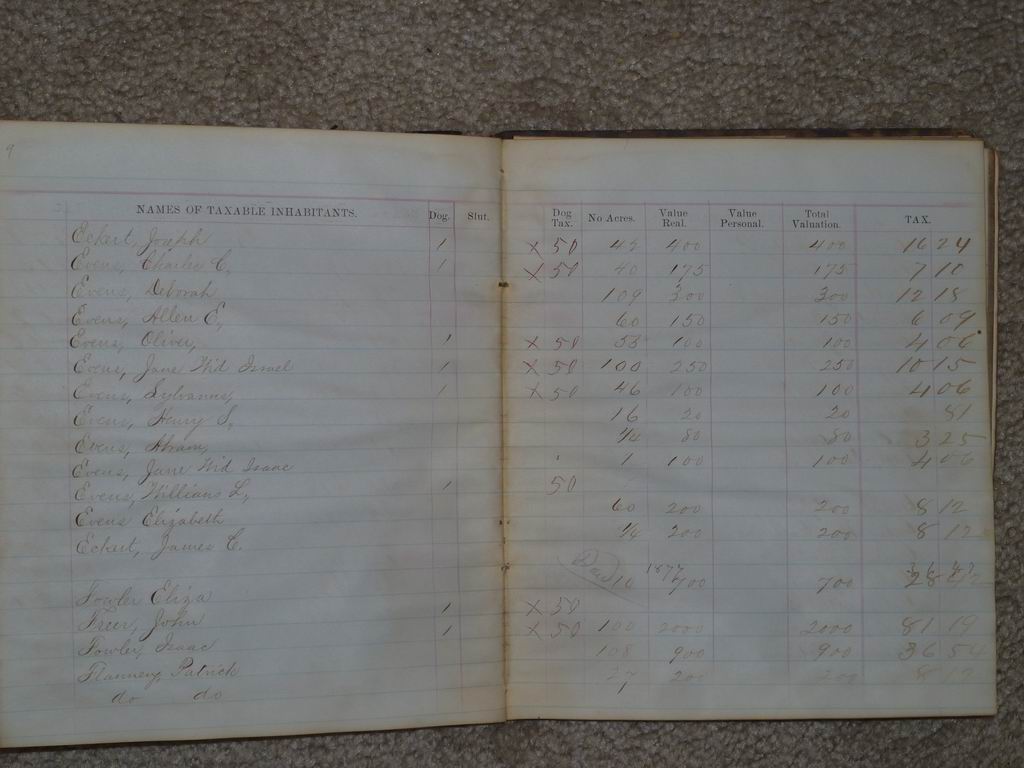 9
NAMES OF TAXABLE INHABITANTS. Dog. Slut. Dog Tax. No Acres. Value Real. Value Personal. Total Valuation. TAX.
Eckert, Joseph 1 x 50 42 400 400 16 24
Evens, Charles C, 1 x 50 40 175 175 7 10
Evens, Deborah 109 300 300 12 18
Evens, Allen E, 60 150 150 6 09
Evens, Oliver, 1 x 50 53 100 100 4 06
Evens, Jane Wid Israel 1 x 50 100 250 250 10 15
Evens, Sylvanus, 1 x 50 46 100 100 4 06
Evens, Henry S, 16 20 20 81
Evens, Abram, 1/4 80 80 3 25
Evens, Jane Wid Isaac 1 100 100 4 06
Evens, William L, 1 50
Evens Elizabeth 60 200 200 8 12
Eckert, James C. 1/4 200 200 8 12
1877
Fowler Eliza 10 700 700 28
Freer, John 1 x 50
Fowler, Isaac 1 x 50 100 2000 2000 81 19
Flannery, Patrick 108 900 900 36 54
do do 27 200 200 8 12